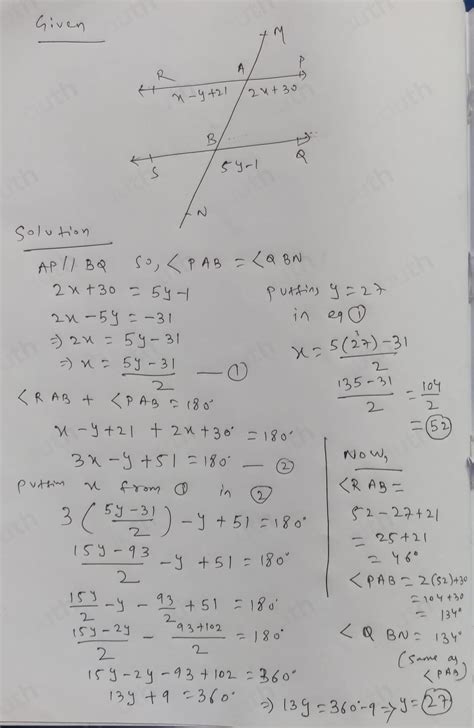 Given
M
R A P
x-y+21 2x+30
B
S 5y-1 Q
N
Solution
AP // BQ so, <PAB = <QBN
2x+30 = 5y-1
2x-5y = -31
=> 2x = 5y-31
=> x = 5y-31/2 — ①
<RAB + <PAB = 180°
x-y+21 + 2x+30° = 180°
3x-y+51 = 180° — ②
putting x from ① in ②
3(5y-31/2) - y + 51 = 180°
15y-93/2 - y + 51 = 180°
15y/2 - y - 93/2 + 51 = 180°
15y-2y/2 - 93+102/2 = 180°
15y-2y-93+102 = 360°
13y+9 = 360°
=> 13y = 360°-9 => y = 27
putting y = 27
in eq ①
x = 5(27)-31/2
135-31/2 = 104/2
= 52
Now,
<RAB =
52-27+21
= 25+21
= 46°
<PAB = 2(52)+30
= 104+30
= 134°
<QBN = 134°
(same as
<PAB)